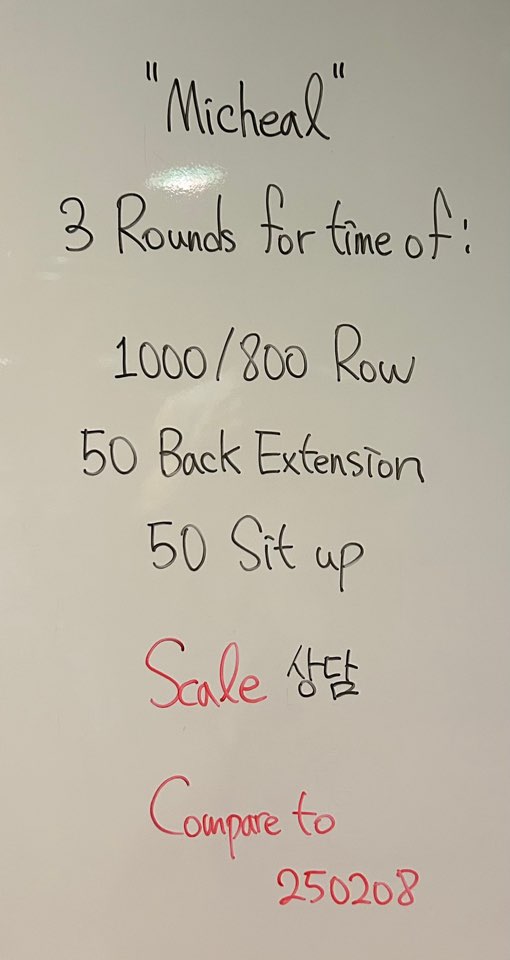 "Micheal"
3 Rounds for time of:
1000/800 Row
50 Back Extension
50 Sit up
Scale 상담
Compare to
250208